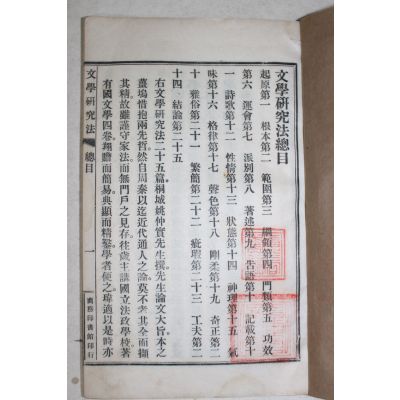 文學研究法總目
起原第一　根本第二　範圍第三　綱領第四　門類第五　功效
第六　運會第七　派別第八　著述第九　告語第十　記載第十
一　詩歌第十二　性情第十三　狀態第十四　神理第十五　氣
味第十六　格律第十七　聲色第十八　剛柔第十九　奇正第二
十　雅俗第二十一　繁簡第二十二　疵瑕第二十三　工夫第二
十四　結論第二十五
右文學研究法二十五篇桐城姚仲實先生撰先生論文大旨本之
薑塢惜抱兩先哲然自周秦以迄近代通人之論莫不考其全而擷
其精故雖謹守家法而無門戶之見存往歲主講國立法政學校著
有國文學四卷翔贍而簡易典顯而精鑿學者便之瑋適以是時亦
文學研究法　總目　一　商務印書館印行